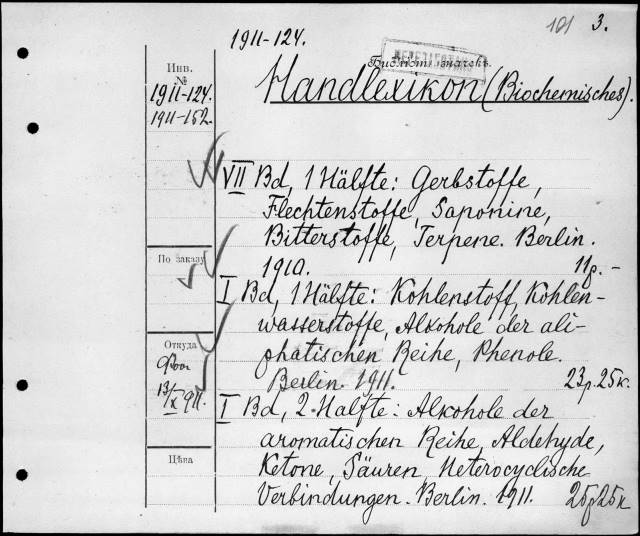 101 3.
1911-124.
Инв.
№
1911-124.
1911-152.
Handlexikon (Biochemisches).
VII Bd, 1 Hälfte: Gerbstoffe,
Flechtenstoffe, Saponine,
Bitterstoffe, Terpene. Berlin.
1910. 11р. -
По заказу
I Bd, 1 Hälfte: Kohlenstoff, Kohlen-
wasserstoffe, Alkohole der ali-
phatischen Reihe, Phenole.
Berlin. 1911. 23р.25к.
Откуда
13/X 911.
I Bd, 2 Halfte: Alkohole der
aromatischen Reihe, Aldehyde,
Ketone, Säuren, Heterocyclische
Verbindungen. Berlin. 1911. 25р25к
Цѣна